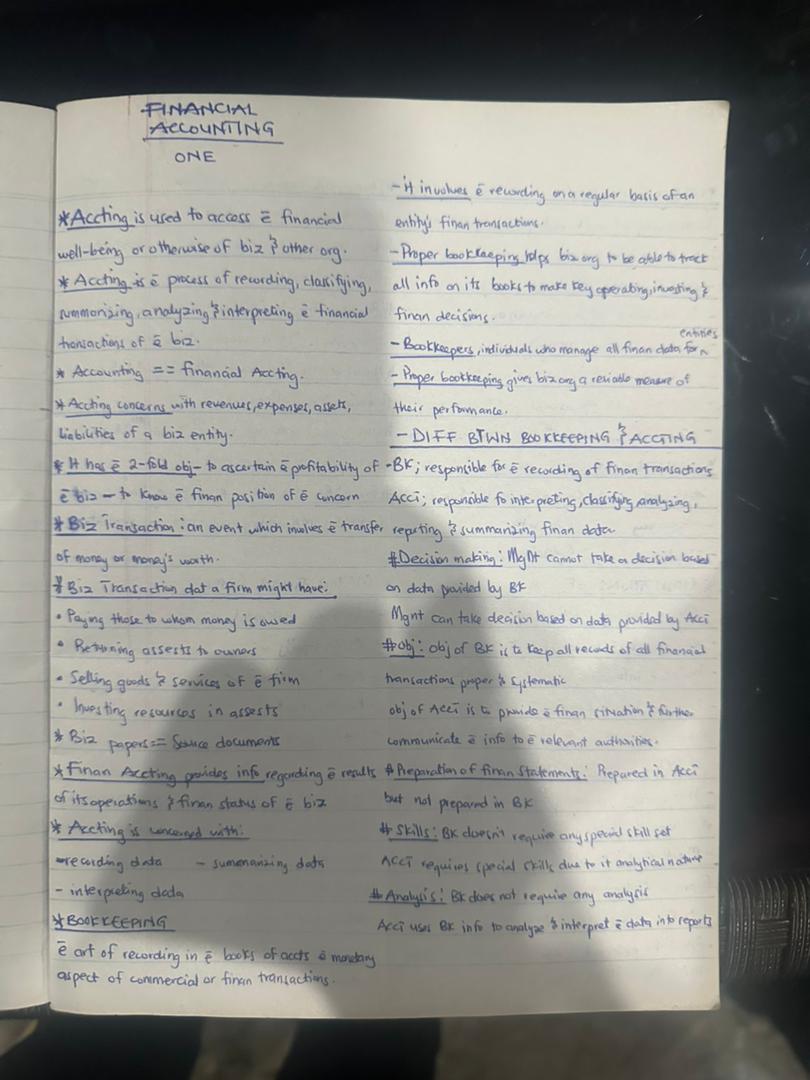 FINANCIAL
ACCOUNTING
ONE
*Accting is used to access ē financial
well-being or otherwise of biz & other org.
* Accting is ē process of recording, classifying,
summarizing, analyzing & interpreting ē financial
transactions of ē biz.
* Accounting == financial Accting.
* Accting concerns with revenues, expenses, assets,
liabilities of a biz entity.
* It has ē 2-fold obj- to ascertain ē profitability of
ē biz – to know ē finan position of ē concern
* Biz Transaction : an event which involves ē transfer
of money or money's worth.
* Biz Transaction dat a firm might have:
• Paying those to whom money is owed
• Returning assests to owners
• Selling goods & services of ē firm
• Investing resources in assests
* Biz papers == Source documents
* Finan Accting provides info regarding ē results
of its operations & finan status of ē biz
* Accting is concerned with:
- recording data - summenarizing data
- interpreting data
* BOOKKEEPING
ē art of recording in ē books of accts ē monetary
aspect of commercial or finan transactions.
- It involves ē recording on a regular basis of an
entity's finan transactions.
- Proper bookkeeping helps biz org to be able to track
all info on its books to make key operating, investing &
finan decisions.
- Bookkeepers, individuals who manage all finan data for entities
- Proper bookkeeping gives biz org a reliable measure of
their performance.
- DIFF BTWN BOOKKEEPING & ACCTING
-BK; responsible for ē recording of finan transactions
Acct; responsible fo interpreting, classifying, analyzing,
reporting & summarizing finan data
#Decision making: Mgnt cannot take a decision based
on data provided by BK
Mgnt can take decision based on data provided by Acct
#Obj: obj of BK is to keep all records of all financial
transactions proper & systematic
obj of Acct is to provide ē finan situation & further
communicate ē info to ē relevant authorities.
# Preparation of finan Statements: Prepared in Acct
but not prepared in BK
# Skills: BK doesn't require any special skill set
Acct requires special skills due to it analytical nature
# Analysis: BK does not require any analysis
Acct uses BK info to analyze & interpret ē data into reports